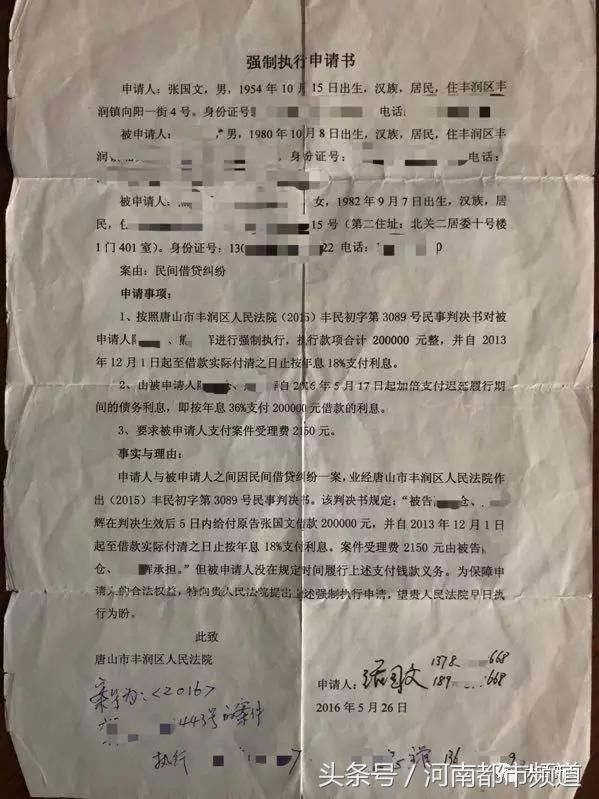 强制执行申请书
申请人：张国文，男，1954年10月15日出生，汉族，居民，住丰润区丰
润镇向阳一街4号。身份证号 电话
被申请人： 男，1980年10月8日出生，汉族，居民，住丰润区丰
润镇 身份证号： 电话：
被申请人： 女，1982年9月7日出生，汉族，居
民，住 15号（第二住址：北关二居委十号楼
1门401室）。身份证号：13 22 电话：
案由：民间借贷纠纷
申请事项：
1、按照唐山市丰润区人民法院（2015）丰民初字第3089号民事判决书对被
申请人 、 进行强制执行，执行款项合计200000元整，并自2013
年12月1日起至借款实际付清之日止按年息18%支付利息。
2、由被申请人 、 自2016年5月17日起加倍支付迟延履行期
间的债务利息，即按年息36%支付200000元借款的利息。
3、要求被申请人支付案件受理费2150元。
事实与理由：
申请人与被申请人之间因民间借贷纠纷一案，业经唐山市丰润区人民法院作
出（2015）丰民初字第3089号民事判决书。该判决书规定：“被告 仓、
辉在判决生效后5日内给付原告张国文借款200000元，并自2013年12月1日
起至借款实际付清之日止按年息18%支付利息。案件受理费2150元由被告
仓、 辉承担。”但被申请人没在规定时间履行上述支付钱款义务。为保障申
请人的合法权益，特向贵人民法院提出上述强制执行申请，望贵人民法院早日执
行为盼。
此致
唐山市丰润区人民法院
申请人：张国文 1378 668
189 668
2016年5月26日
案号为：<2016>
443号的案件
执行 136 9
头条号／河南都市频道